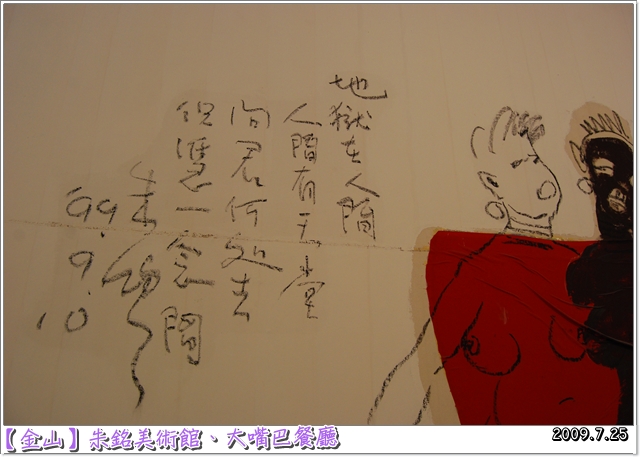 地獄在人間
人間有天堂
问君何処去
但憑一念間
朱銘
99.9.10
【金山】朱銘美術館、大嘴巴餐廳
2009.7.25